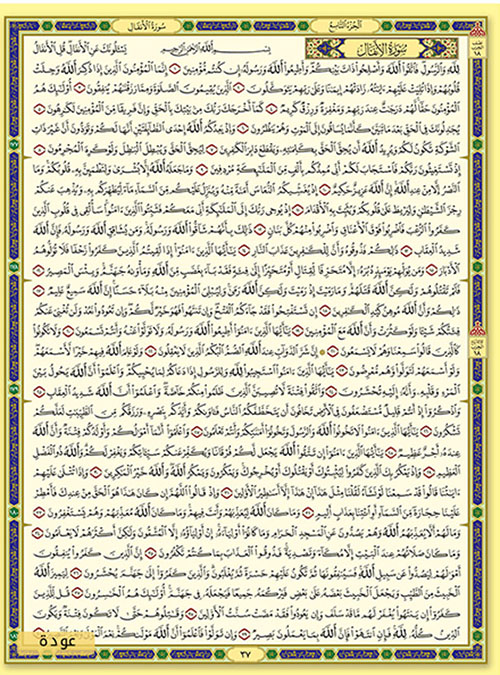 الجزء التاسع
سورة الأنفال
سورة الأنفال بسم الله الرحمن الرحيم يسئلونك عن الأنفال قل الأنفال
لله والرسول فاتقوا الله وأصلحوا ذات بينكم وأطيعوا الله ورسوله إن كنتم مؤمنين ١ إنما المؤمنون الذين إذا ذكر الله وجلت
قلوبهم وإذا تليت عليهم ءايته زادتهم إيمنا وعلى ربهم يتوكلون ٢ الذين يقيمون الصلوة ومما رزقنهم ينفقون ٣ أولئك هم
المؤمنون حقا لهم درجت عند ربهم ومغفرة ورزق كريم ٤ كما أخرجك ربك من بيتك بالحق وإن فريقا من المؤمنين لكرهون ٥
يجدلونك في الحق بعد ما تبين كأنما يساقون إلى الموت وهم ينظرون ٦ وإذ يعدكم الله إحدى الطائفتين أنها لكم وتودون أن غير ذات
الشوكة تكون لكم ويريد الله أن يحق الحق بكلمته ويقطع دابر الكفرين ٧ ليحق الحق ويبطل البطل ولو كره المجرمون ٨
إذ تستغيثون ربكم فاستجاب لكم أني ممدكم بألف من الملئكة مردفين ٩ وما جعله الله إلا بشرى ولتطمئن به قلوبكم وما
النصر إلا من عند الله إن الله عزيز حكيم ١٠ إذ يغشيكم النعاس أمنة منه وينزل عليكم من السماء ماء ليطهركم به ويذهب عنكم
رجز الشيطن وليربط على قلوبكم ويثبت به الأقدام ١١ إذ يوحي ربك إلى الملئكة أني معكم فثبتوا الذين ءامنوا سألقي في قلوب الذين
كفروا الرعب فاضربوا فوق الأعناق واضربوا منهم كل بنان ١٢ ذلك بأنهم شاقوا الله ورسوله ومن يشاقق الله ورسوله فإن الله
شديد العقاب ١٣ ذلكم فذوقوه وأن للكفرين عذاب النار ١٤ يأيها الذين ءامنوا إذا لقيتم الذين كفروا زحفا فلا تولوهم
الأدبار ١٥ ومن يولهم يومئذ دبره إلا متحرفا لقتال أو متحيزا إلى فئة فقد باء بغضب من الله ومأوىه جهنم وبئس المصير ١٦
فلم تقتلوهم ولكن الله قتلهم وما رميت إذ رميت ولكن الله رمى وليبلي المؤمنين منه بلاء حسنا إن الله سميع عليم ١٧
ذلكم وأن الله موهن كيد الكفرين ١٨ إن تستفتحوا فقد جاءكم الفتح وإن تنتهوا فهو خير لكم وإن تعودوا نعد ولن تغني عنكم
فئتكم شيئا ولو كثرت وأن الله مع المؤمنين ١٩ يأيها الذين ءامنوا أطيعوا الله ورسوله ولا تولوا عنه وأنتم تسمعون ٢٠ ولا تكونوا
كالذين قالوا سمعنا وهم لا يسمعون ٢١ إن شر الدواب عند الله الصم البكم الذين لا يعقلون ٢٢ ولو علم الله فيهم خيرا لأسمعهم
ولو أسمعهم لتولوا وهم معرضون ٢٣ يأيها الذين ءامنوا استجيبوا لله وللرسول إذا دعاكم لما يحييكم واعلموا أن الله يحول بين
المرء وقلبه وأنه إليه تحشرون ٢٤ واتقوا فتنة لا تصيبن الذين ظلموا منكم خاصة واعلموا أن الله شديد العقاب ٢٥
واذكروا إذ أنتم قليل مستضعفون في الأرض تخافون أن يتخطفكم الناس فءاوىكم وأيدكم بنصره ورزقكم من الطيبت لعلكم
تشكرون ٢٦ يأيها الذين ءامنوا لا تخونوا الله والرسول وتخونوا أمنتكم وأنتم تعلمون ٢٧ واعلموا أنما أمولكم وأولدكم فتنة وأن الله
عنده أجر عظيم ٢٨ يأيها الذين ءامنوا إن تتقوا الله يجعل لكم فرقانا ويكفر عنكم سيئاتكم ويغفر لكم والله ذو الفضل
العظيم ٢٩ وإذ يمكر بك الذين كفروا ليثبتوك أو يقتلوك أو يخرجوك ويمكرون ويمكر الله والله خير المكرين ٣٠ وإذا تتلى عليهم
ءايتنا قالوا قد سمعنا لو نشاء لقلنا مثل هذا إن هذا إلا أسطير الأولين ٣١ وإذ قالوا اللهم إن كان هذا هو الحق من عندك فأمطر
علينا حجارة من السماء أو ائتنا بعذاب أليم ٣٢ وما كان الله ليعذبهم وأنت فيهم وما كان الله معذبهم وهم يستغفرون ٣٣
وما لهم ألا يعذبهم الله وهم يصدون عن المسجد الحرام وما كانوا أولياءه إن أولياؤه إلا المتقون ولكن أكثرهم لا يعلمون ٣٤
وما كان صلاتهم عند البيت إلا مكاء وتصدية فذوقوا العذاب بما كنتم تكفرون ٣٥ إن الذين كفروا ينفقون
أمولهم ليصدوا عن سبيل الله فسينفقونها ثم تكون عليهم حسرة ثم يغلبون والذين كفروا إلى جهنم يحشرون ٣٦ ليميز الله
الخبيث من الطيب ويجعل الخبيث بعضه على بعض فيركمه جميعا فيجعله في جهنم أولئك هم الخسرون ٣٧ قل للذين
كفروا إن ينتهوا يغفر لهم ما قد سلف وإن يعودوا فقد مضت سنت الأولين ٣٨ وقتلوهم حتى لا تكون فتنة ويكون
الدين كله لله فإن انتهوا فإن الله بما يعملون بصير ٣٩ وإن تولوا فاعلموا أن الله مولىكم نعم المولى
عودة
٣٧